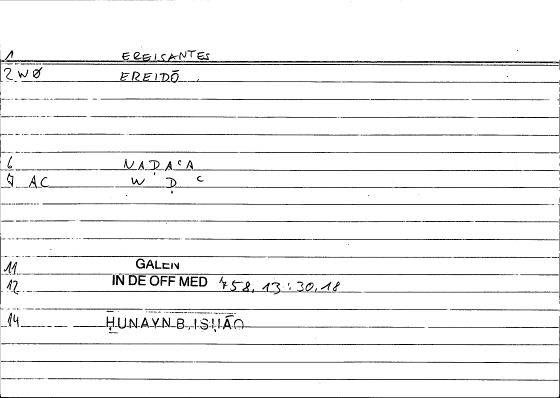 1 EREISANTES
2 WØ EREIDŌ
6 NAḌAᶜA
7 AC W Ḍ ᶜ
11 GALEN
12 IN DE OFF MED 758, 13 : 30, 18
14 ḤUNAYN B. ISḤĀQ